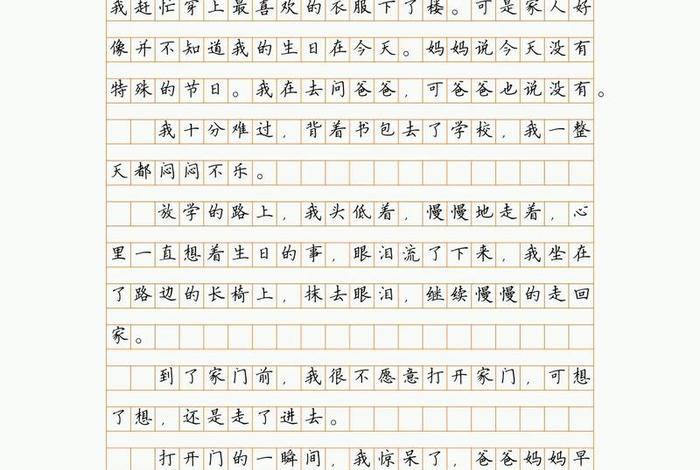 我赶忙穿上最喜欢的衣服下了楼。可是家人好
像并不知道我的生日在今天。妈妈说今天没有
特殊的节日。我在去问爸爸，可爸爸也说没有。
我十分难过，背着书包去了学校，我一整
天都闷闷不乐。
放学的路上，我头低着，慢慢地走着，心
里一直想着生日的事，眼泪流了下来，我坐在
了路边的长椅上，抹去眼泪，继续慢慢的走回
家。
到了家门前，我很不愿意打开家门，可想
了想，还是走了进去。
打开门的一瞬间，我惊呆了，爸爸妈妈早